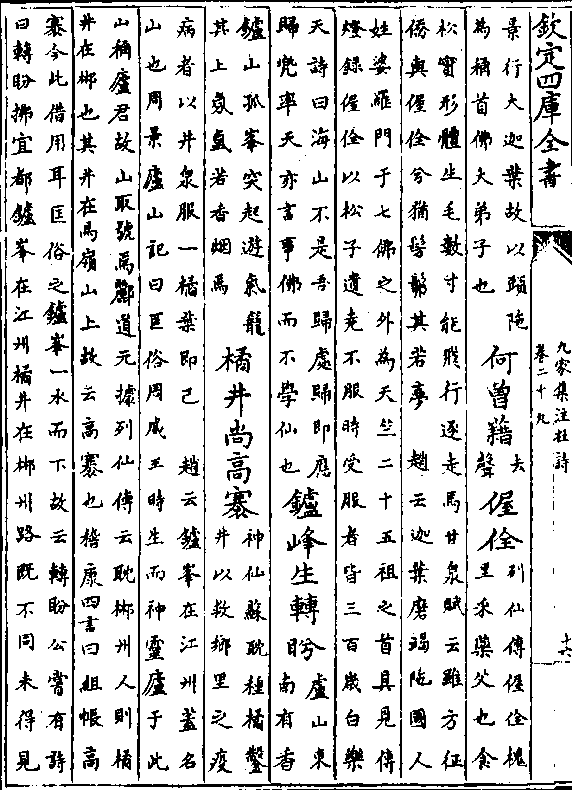 欽定四庫全書
九家集注杜詩
卷二十九
十六
景行大迦葉故以頭陁
為稱首佛大弟子也
何曾藉
去聲
偓佺
列仙傳偓佺槐
里采藥父也食
松實形體生毛數寸能飛行逐走馬甘泉賦云雖方征
僑與偓佺兮猶髣髴其若夢 趙云迦葉摩竭陁國人
姓婆羅門于七佛之外為天竺二十五祖之首具見傳
燈錄偓佺以松子遺堯不服時受服者皆三百歲白樂
天詩曰海山不是吾歸處歸即應
歸兠率天亦言事佛而不學仙也
鑪峰生轉盼
廬山東
南有香
鑪山孤峯突起遊氣籠
其上氛氲若香烟焉
橘井尚高褰
神仙蘇耽種橘鑿
井以救鄉里之疫
病者以井泉服一橘葉即已 趙云鑪峯在江州蓋名
山也周景廬山記曰匡俗周威王時生而神靈廬于此
山稱廬君故山取號焉酈道元據列仙傳云耽郴州人則橘
井在郴也其井在馬嶺山上故云高褰也嵇康四言曰組帳高
褰今此借用耳匡俗之鑪峯一水而下故云轉盼公嘗有詩
曰轉盼拂宜都鑪峯在江州橘井在郴州路既不同未得見